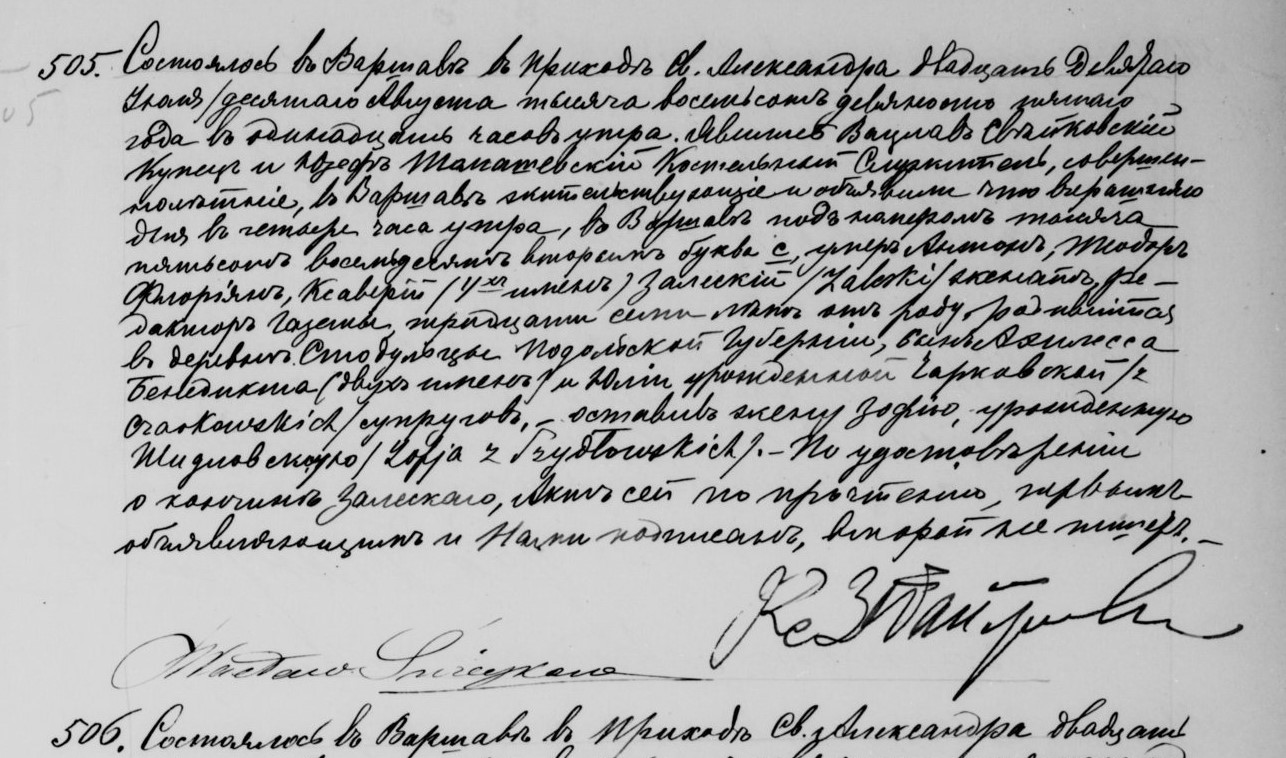 505. Состоялось въ Варшавѣ въ приходѣ Св. Александра двадцать девятаго
Іюля/десятаго Августа тысяча восемьсотъ девяносто пятаго
года въ одинадцать часовъ утра. Явились Вацлавъ Свѣтковскій
Купецъ и Юзефъ Магашевскій Костельный Служитель, совершен-
нолѣтніе, въ Варшавѣ жительствующіе и объявили что вчерашняго
дня въ четыре часа утра, въ Варшавѣ подъ номеромъ тысяча
пятьсотъ восемьдесятъ вторымъ буква с, умеръ Антонъ, Теодоръ
Флоріянъ, Ксаверій (4хъ именъ) Залескій /Zaleski/ женатъ, ре-
дакторъ Газеты, тридцати семи лѣтъ отъ роду, родившійся
въ деревнѣ Стодульцы Подольской Губерніи, сынъ Ахиллеса
Бенедикта (двухъ именъ) и Юліи урожденной Чарковской /z
Czarkowskich/ супруговъ, – оставивъ жену Зофію, урожденную
Шидловскую /Zofja z Szydłowskich/. – По удостовѣреніи
о кончинѣ Залескаго, Актъ сей по прочтеніи, первымъ
объявляющимъ и Нами подписанъ, второй не пишетъ. –
Wacław
506. Состоялось въ Варшавѣ въ приходѣ Св. Александра двадцать